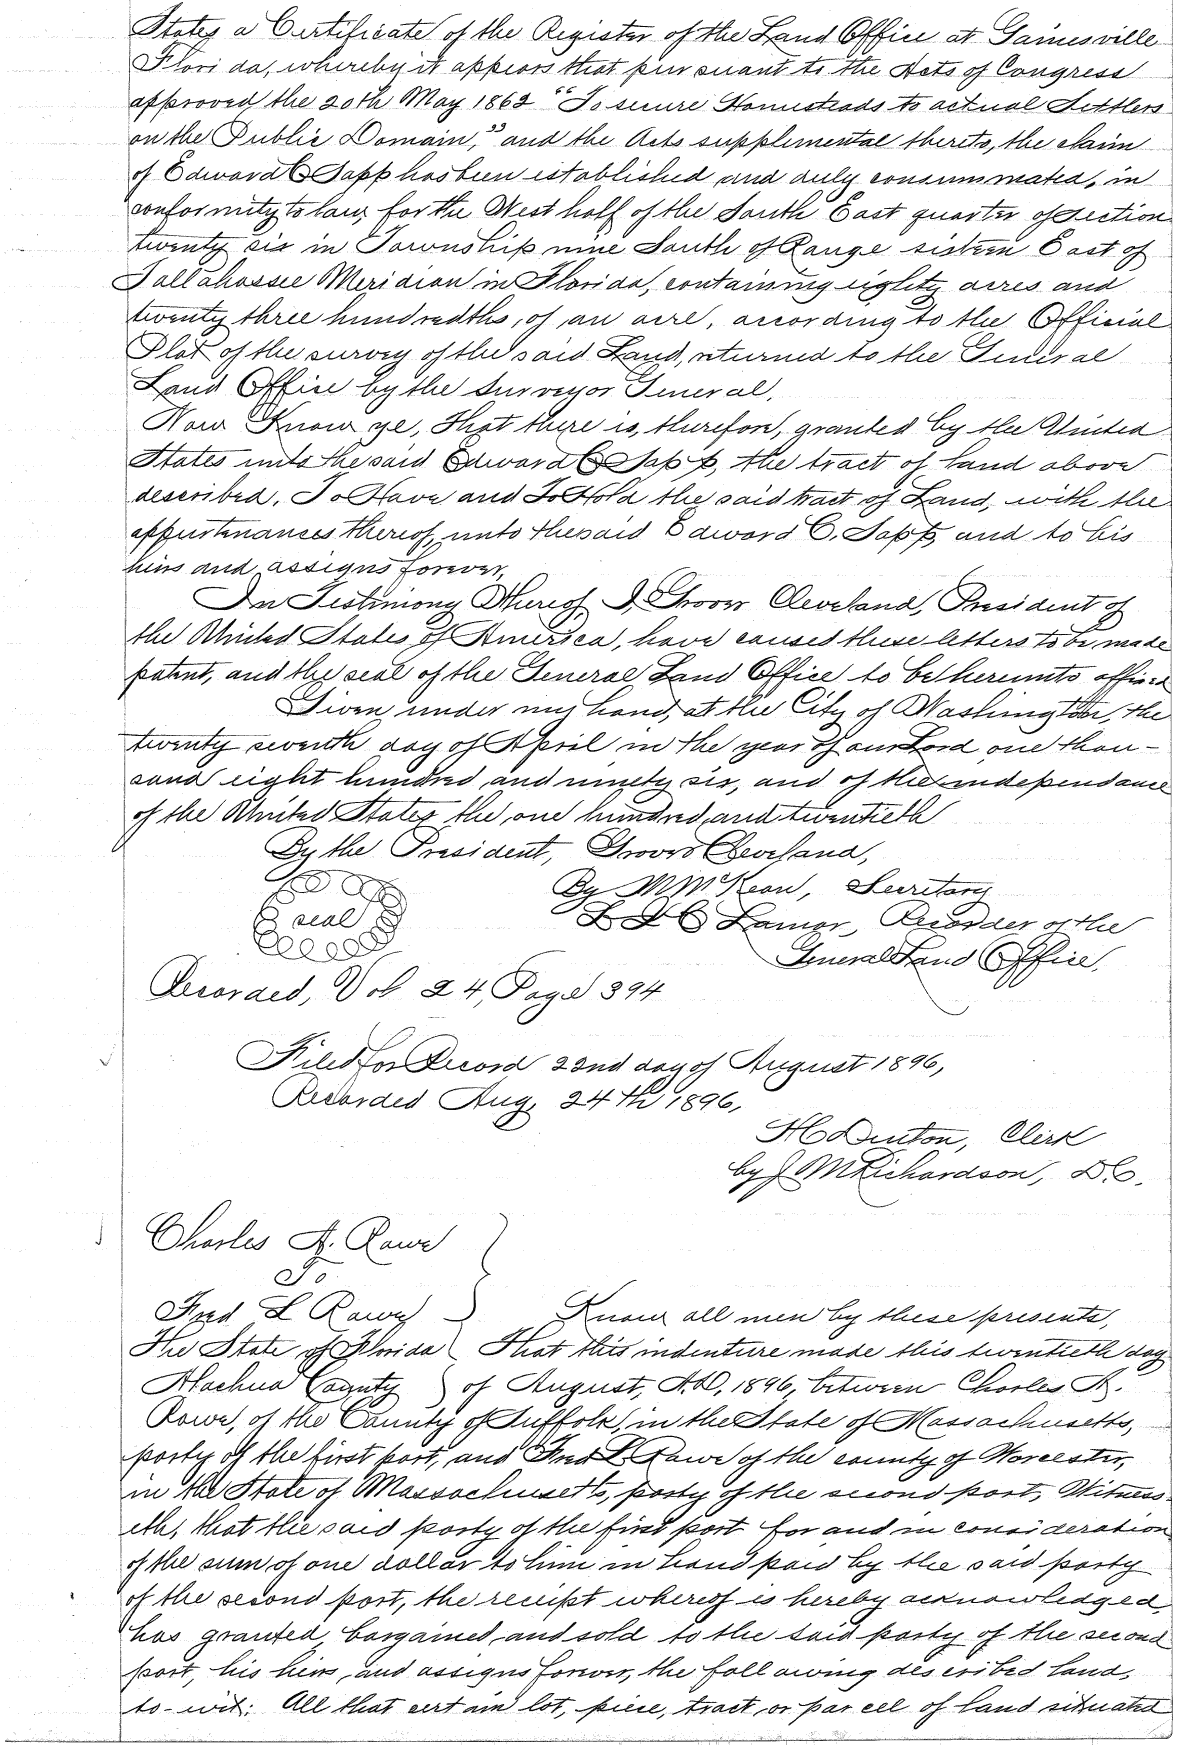 States a Certificate of the Register of the Land Office at Gainesville
Florida, whereby it appears that pursuant to the Acts of Congress
approved the 20th May 1862 "To secure Homesteads to actual Settlers
on the Public Domain," and the Acts supplemental thereto, the claim
of Edward C Sapp has been established and duly consummated, in
conformity to law, for the West half of the South East quarter of section
twenty six in Township nine South of Range sixteen East of
Tallahassee Meridian in Florida, containing eighty acres and
twenty three hundredths, of an acre, according to the Official
Plat of the survey of the said Land, returned to the General
Land Office by the Surveyor General.
Now Know ye, That there is, therefore, granted by the United
States unto the said Edward C Sapp, the tract of land above
described. To Have and To Hold the said tract of Land, with the
appurtenances thereof, unto the said Edward C. Sapp, and to his
heirs and assigns forever,
In Testimony Whereof I, Grover Cleveland, President of
the United States of America, have caused these letters to be made
patent, and the seal of the General Land Office to be hereunto affixed
Given under my hand, at the City of Washington, the
twenty seventh day of April in the year of our Lord one thou-
sand eight hundred and ninety six, and of the independance
of the United States the one hundred and twentieth
By the President, Grover Cleveland,
seal
By M McKean, Secretary
L Q C Lamar, Recorder of the
General Land Office,
Recorded, Vol 24, Page 394
Filed for Record 22nd day of August 1896,
Recorded Aug, 24th 1896,
H C Denton, Clerk
by J M Richardson, D.C.
Charles A. Rowe
To
Fred L Rowe Know all men by these presents,
The State of Florida That this indenture made this twentieth day
Alachua County of August, A.D, 1896, between Charles A.
Rowe, of the County of Suffolk, in the State of Massachusetts,
party of the first part, and Fred L. Rowe of the county of Worcester,
in the State of Massachusetts, party of the second part, Witness-
eth, that the said party of the first part for and in consideration
of the sum of one dollar to him in hand paid by the said party
of the second part, the receipt whereof is hereby acknowledged,
has granted, bargained, and sold to the said party of the second
part, his heirs, and assigns forever, the following described land,
to-wit: All that certain lot, piece, tract or parcell of land situated